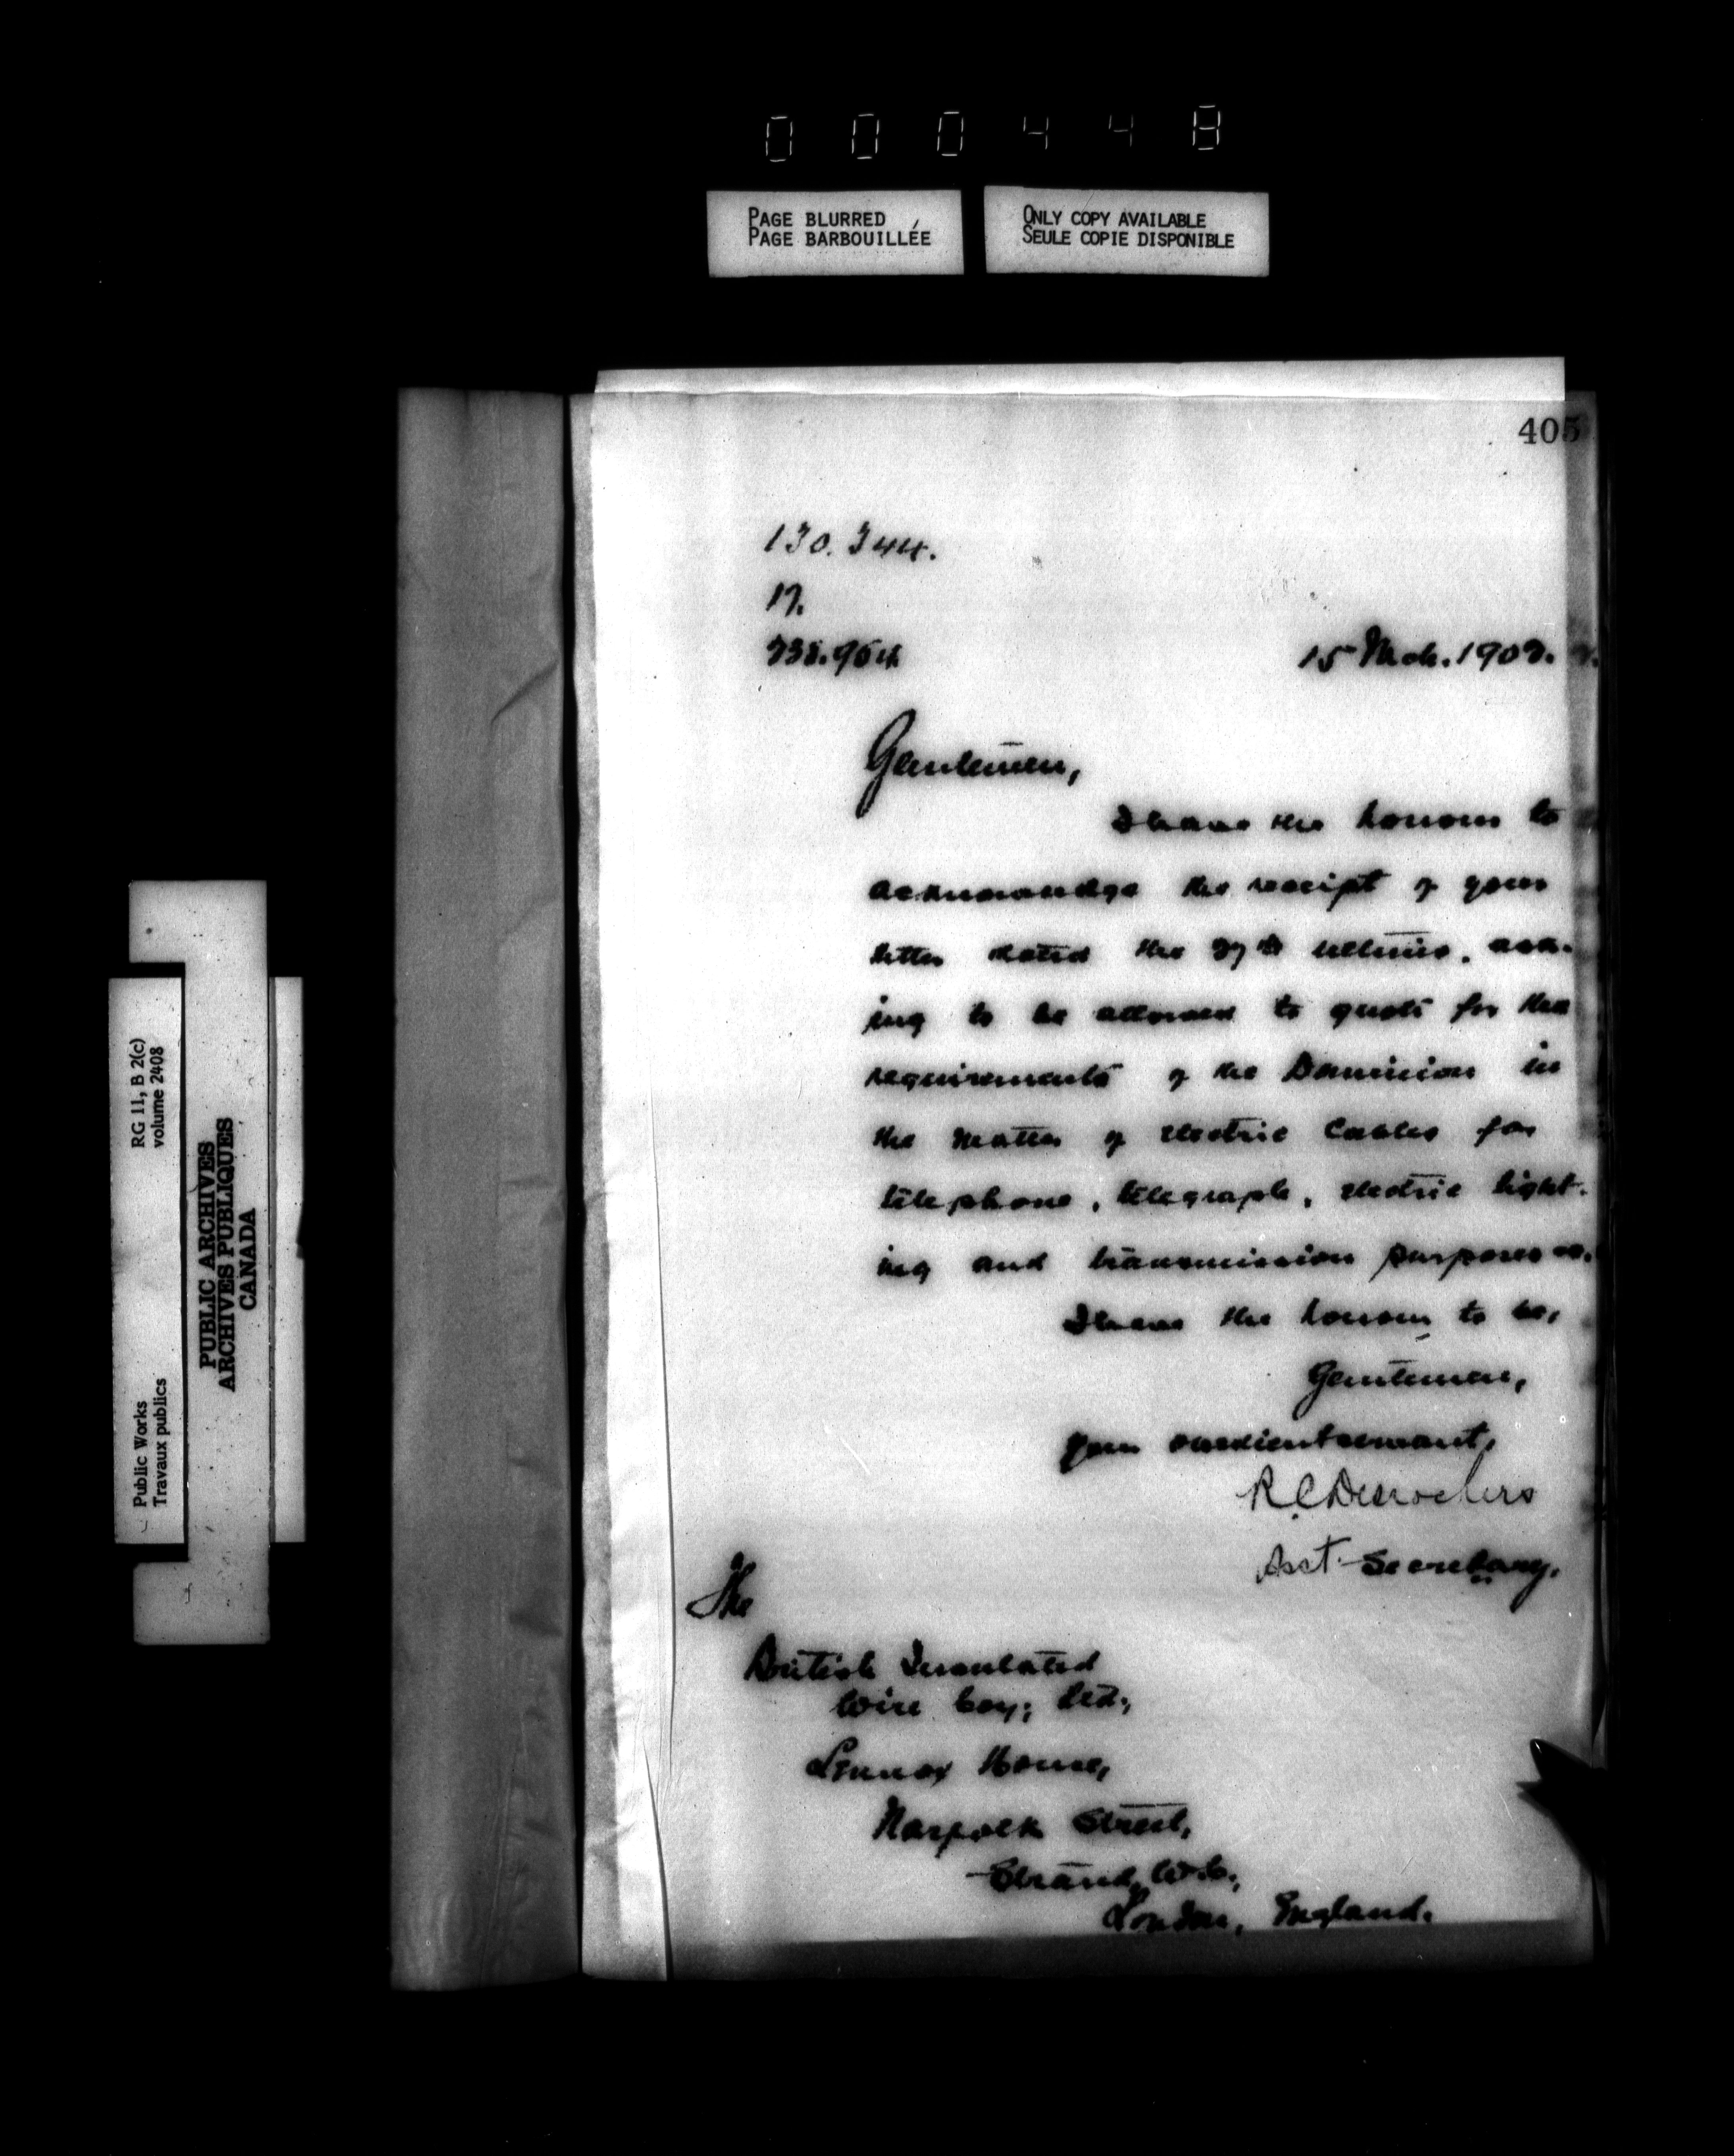 000448
PAGE BLURRED
PAGE BARBOUILLÉE
ONLY COPY AVAILABLE
SEULE COPIE DISPONIBLE
405
130.344.
17.
15 Mch. 190
Gentlemen,
I have the honour to
acknowledge the receipt of your
letter dated the ultimo, ask-
ing to be allowed to quote for the
requirements of the Dominion in
the matter of electric cables for
telephone, telegraph, electric light-
ing and transmission purposes
I have the honour to be,
Gentlemen,
Your obedient servant,
R.C. Desrochers
Asst. Secretary.
The
British Insulated
Wire Coy; Ltd.,
Lennox House,
Norfolk Street,
Strand, W.C.,
London, England.
RG 11, B 2(c)
volume 2408
Public Works
Travaux publics
PUBLIC ARCHIVES
ARCHIVES PUBLIQUES
CANADA